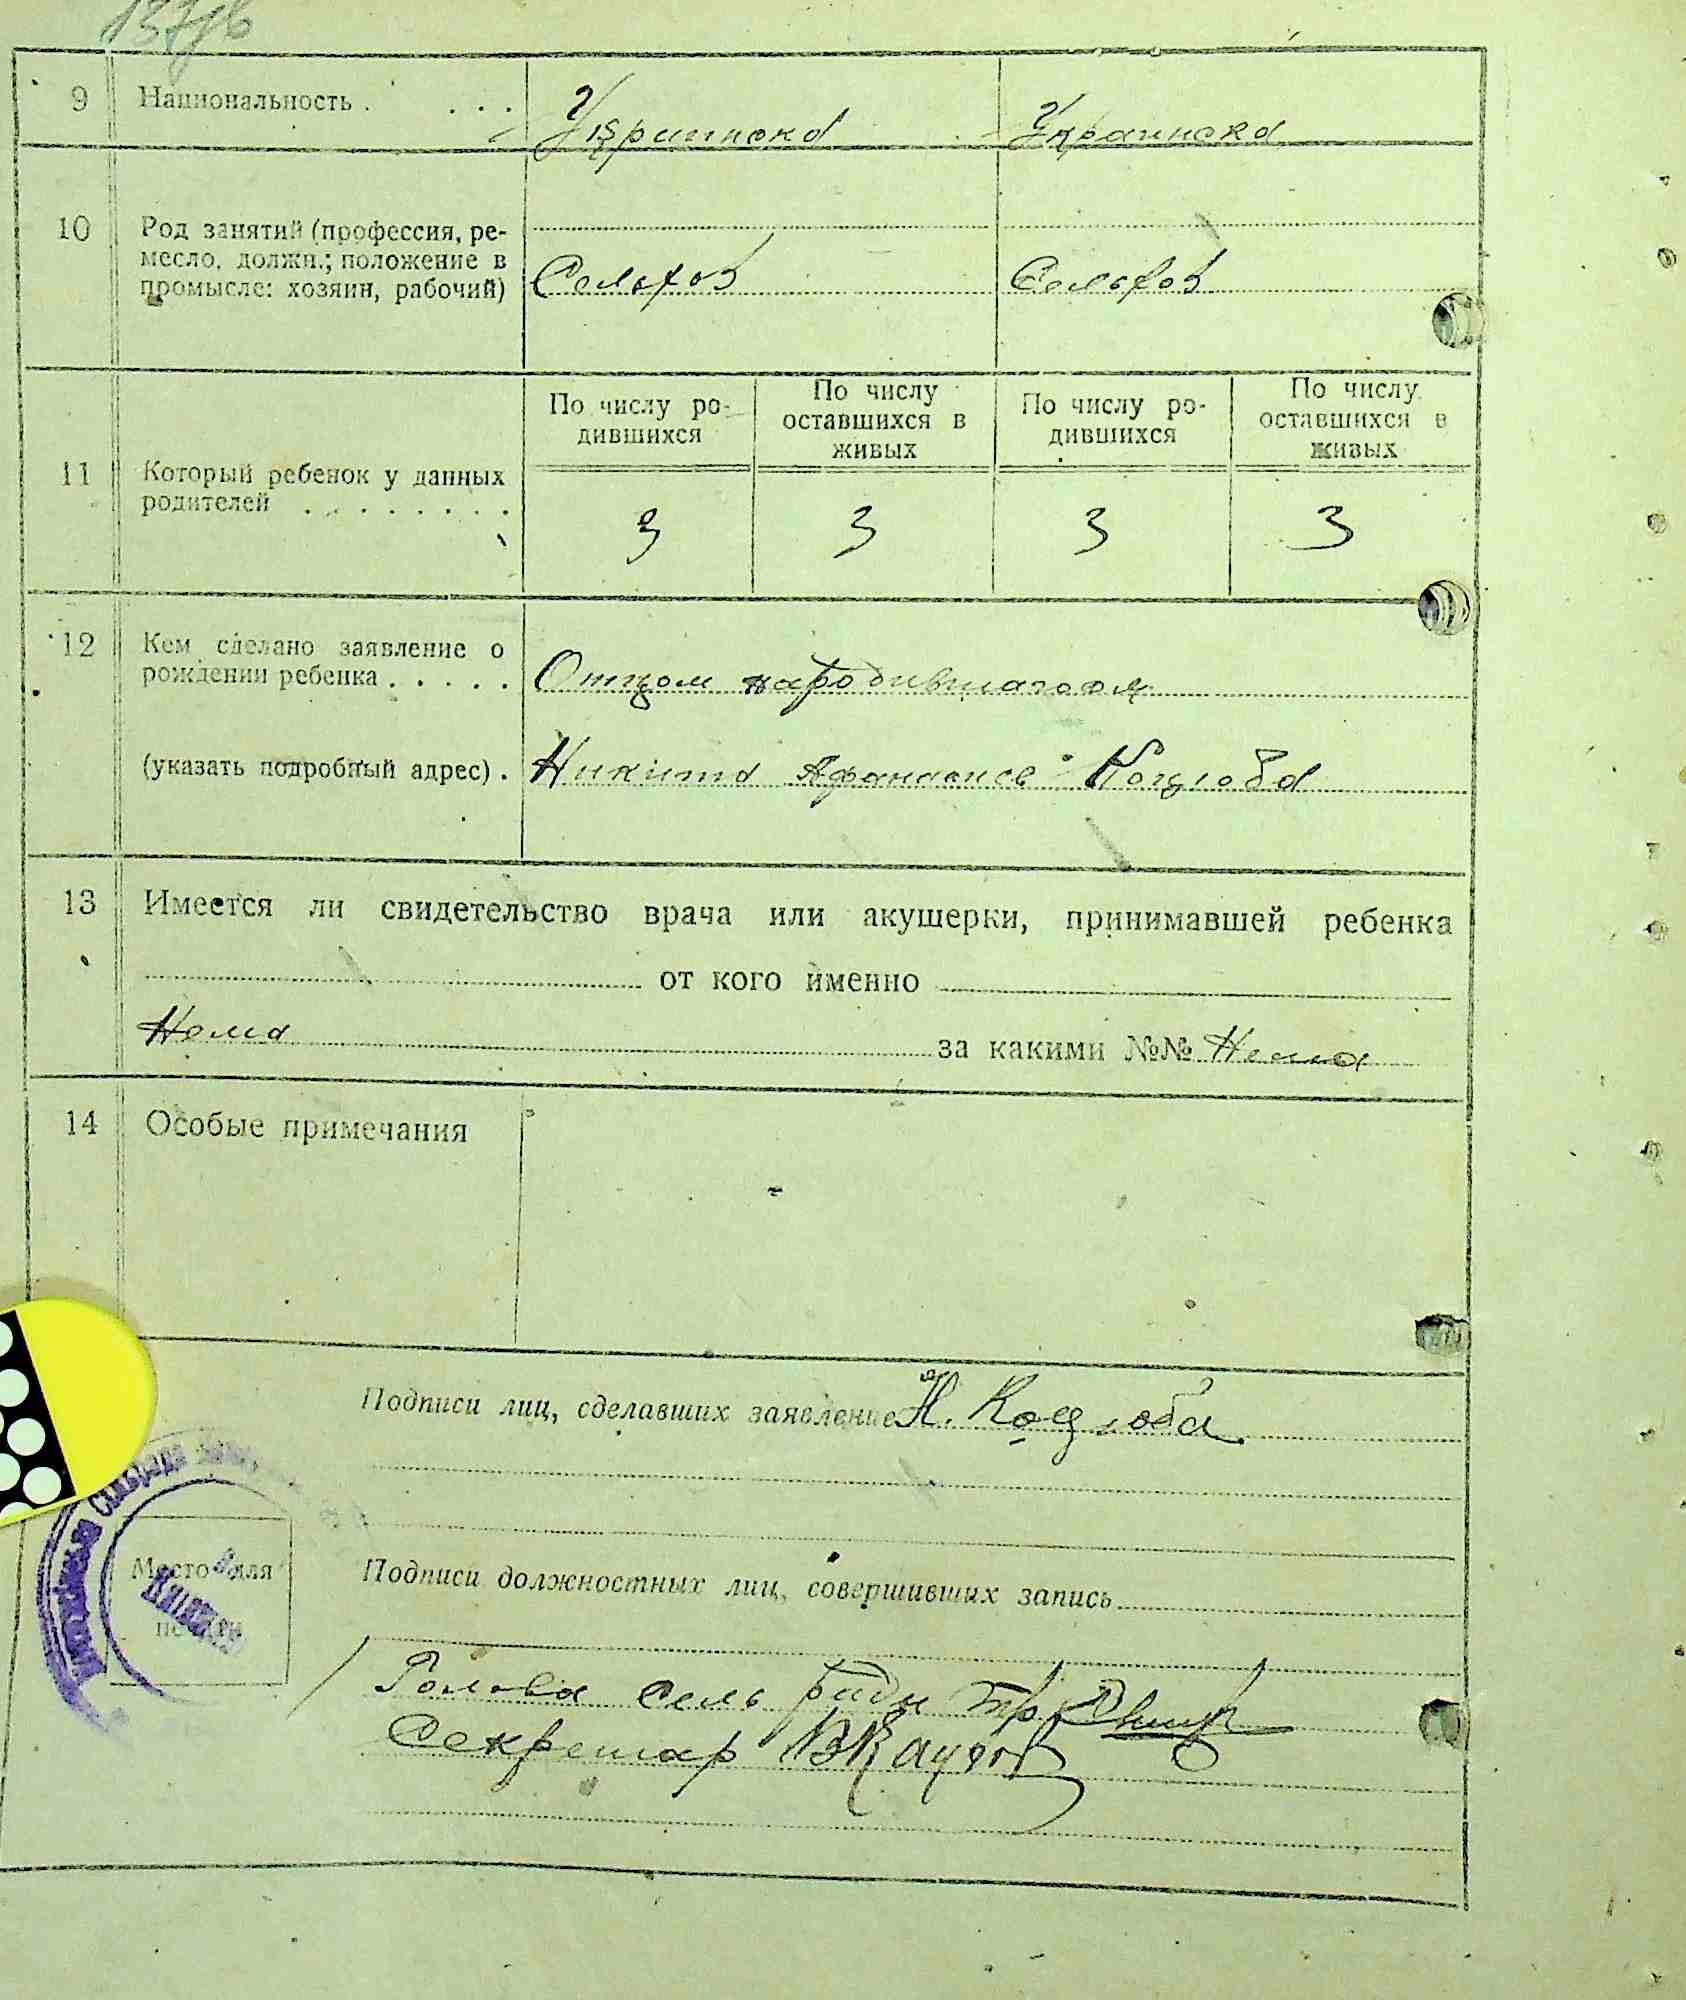 137зв
9 Национальность . . . . Украинска Украинска
10 Род занятий (профессия, ре-
месло, должн.; положение в
промысле: хозяин, рабочий) Сельхоз Сельхоз
По числу ро-
дившихся
По числу
оставшихся в
живых
По числу ро-
дившихся
По числу
оставшихся в
живых
11 Который ребенок у данных
родителей . . . . . . . . 3 3 3 3
12 Кем сделано заявление о
рождении ребенка . . . . . Отцом народившагося
(указать подробный адрес) . Никита Афанасиев Коцюба
13 Имеется ли свидетельство врача или акушерки, принимавшей ребенка
от кого именно
Нема за какими №№ Нема
14 Особые примечания
-
Подписи лиц, сделавших заявление Н. Коцюба
Место для
печати
Подписи должностных лиц, совершивших запись
Голова сель ради
Секретар